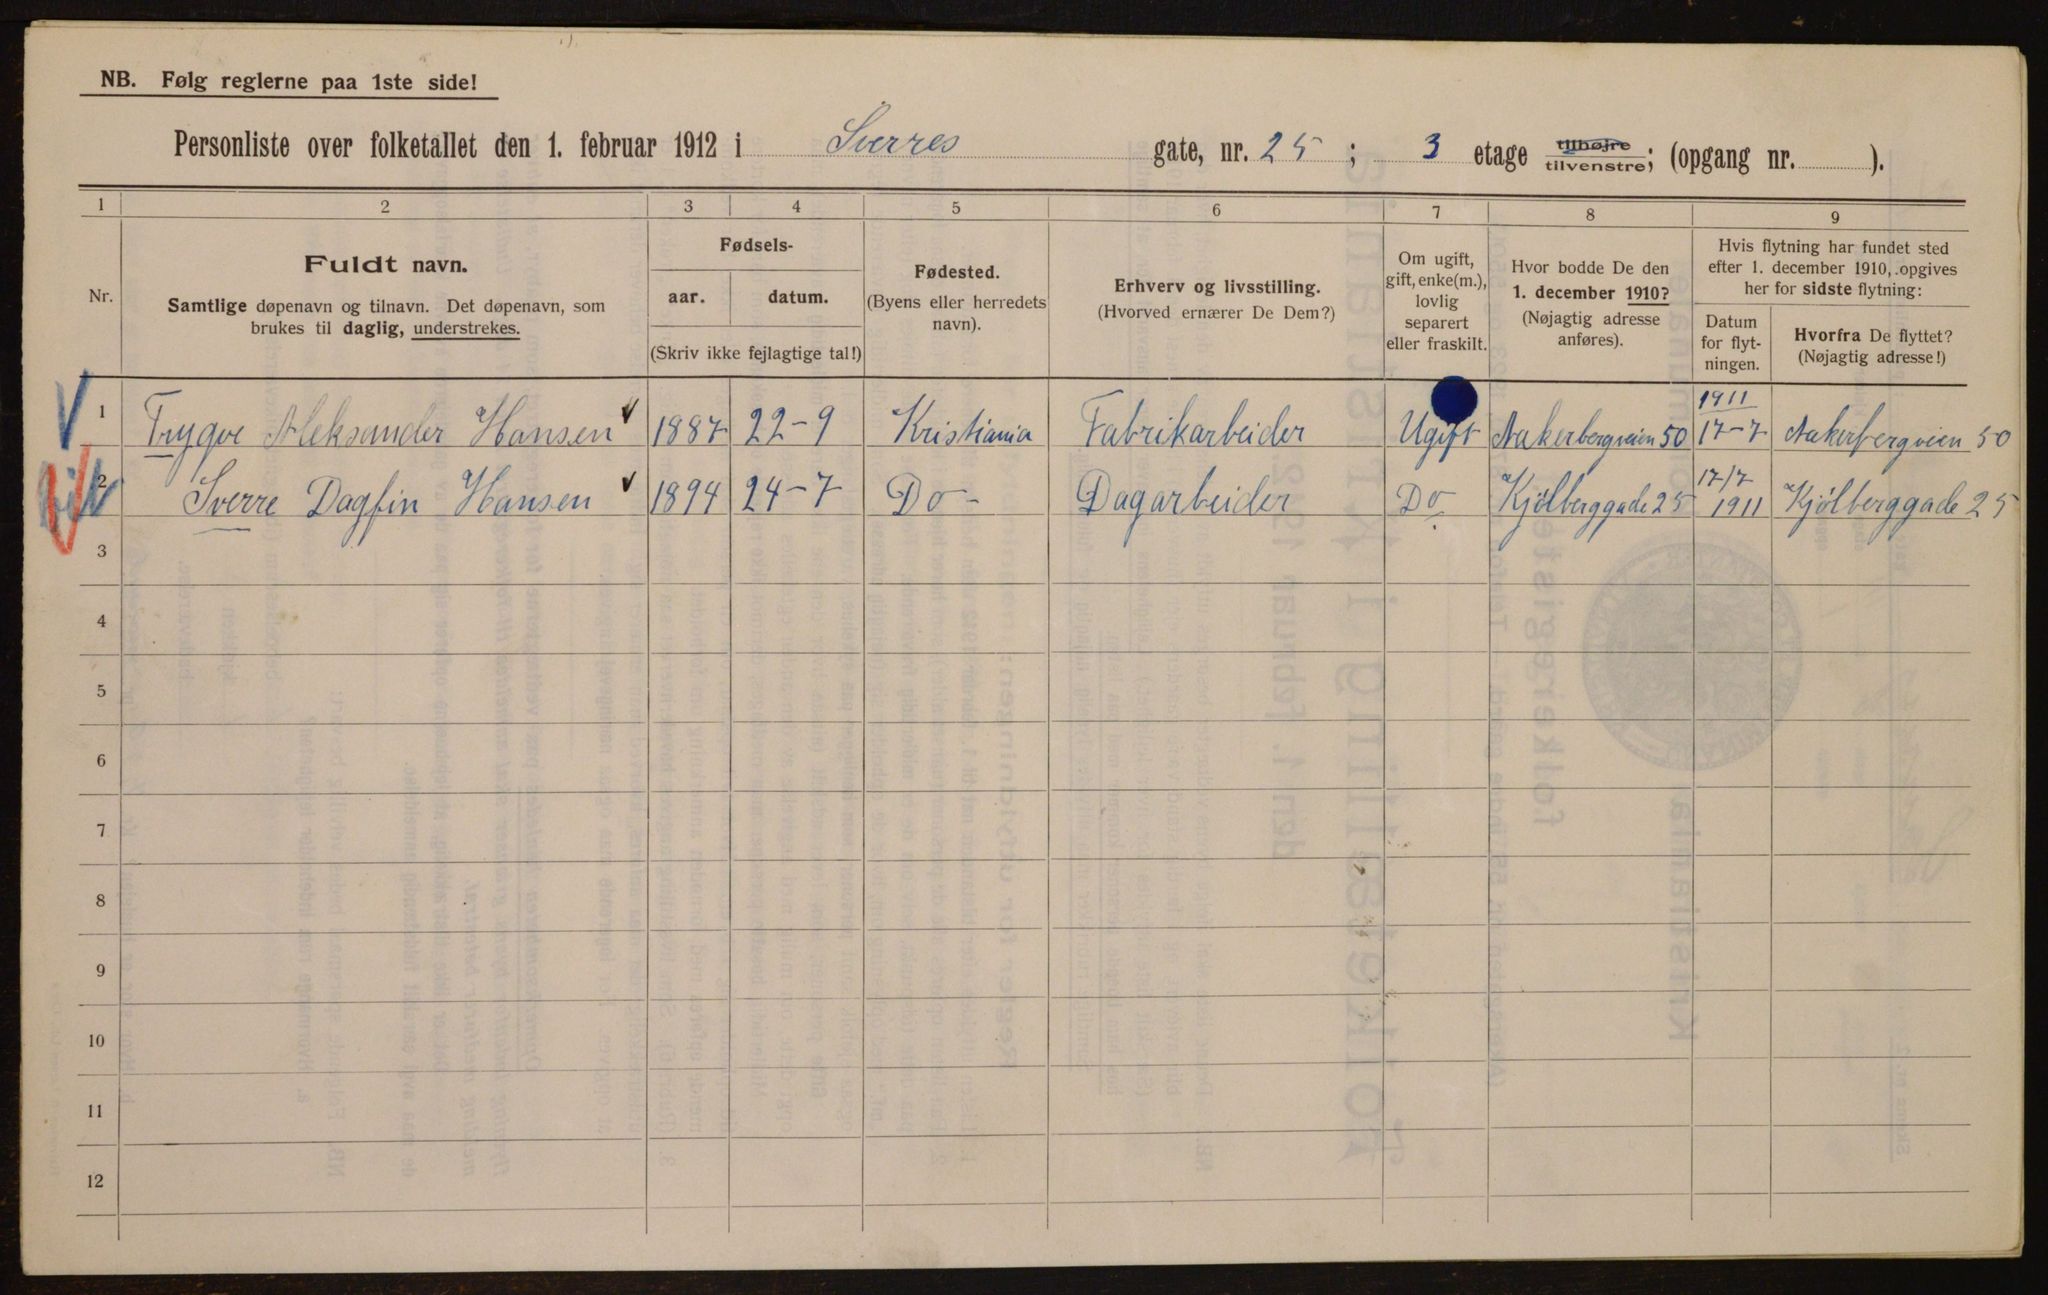 NB. Følg reglerne paa 1ste side!
Personliste over folketallet den 1. februar 1912 i Sverres gate, nr. 25; 3 etage tilhøjre tilvenstre; (opgang nr. ).
1 2 3 4 5 6 7 8 9
Nr.
Fuldt navn.
Samtlige døpenavn og tilnavn. Det døpenavn, som
brukes til daglig, understrekes.
Fødsels-
aar. datum.
(Skriv ikke fejlagtige tal!)
Fødested.
(Byens eller herredets
navn).
Erhverv og livsstilling.
(Hvorved ernærer De Dem?)
Om ugift,
gift, enke(m.),
lovlig
separert
eller fraskilt.
Hvor bodde De den
1. december 1910?
(Nøjagtig adresse
anføres).
Hvis flytning har fundet sted
efter 1. december 1910, opgives
her for sidste flytning:
Datum
for flyt-
ningen.
Hvorfra De flyttet?
(Nøjagtig adresse!)
1 Trygve Aleksander Hansen 1887 22-9 Kristiania Fabrikarbeider Ugift Aakerbergveien 50 1911 17-7 Aakerbergveien 50
2 Sverre Dagfin Hansen 1894 24-7 Do- Dagarbeider Do Kjølberggade 25 17/7 1911 Kjølberggade 25
3
4
5
6
7
8
9
10
11
12